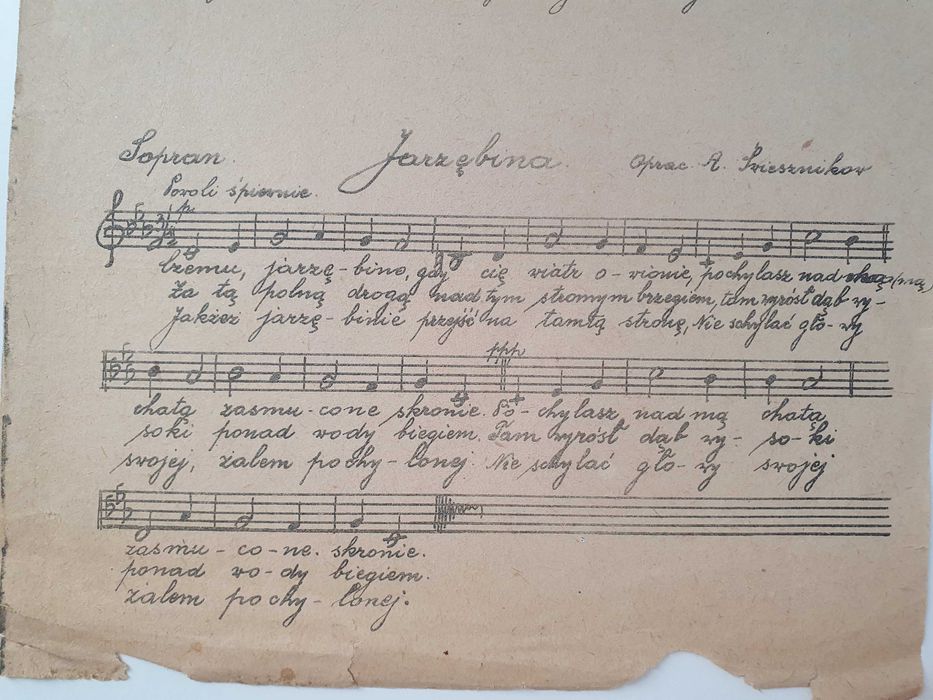 Sopran. Jarzębina. Oprac. A. Świesznikow
Powoli śpiewnie.
p
Czemu, jarzę-bino, gdy cię wiatr o-wionie, pochylasz nad (mą)
Za tą polną drogą nad tym stromym brzegiem, tam wyrósł dąb wy-
Jakżeż jarzę-binie przejść na tamtą stronę, Nie schylać gło-wy
ppp
chatą zasmu-cone skronie. Po-chylasz nad mą chatą
soki ponad wody biegiem. Tam wyrósł dąb wy-so-ki
swojej, żalem pochy-lonej. Nie schylać gło-wy swojej
zasmu-co-ne. skronie.
ponad wo-dy biegiem.
żalem pochy-lonej.